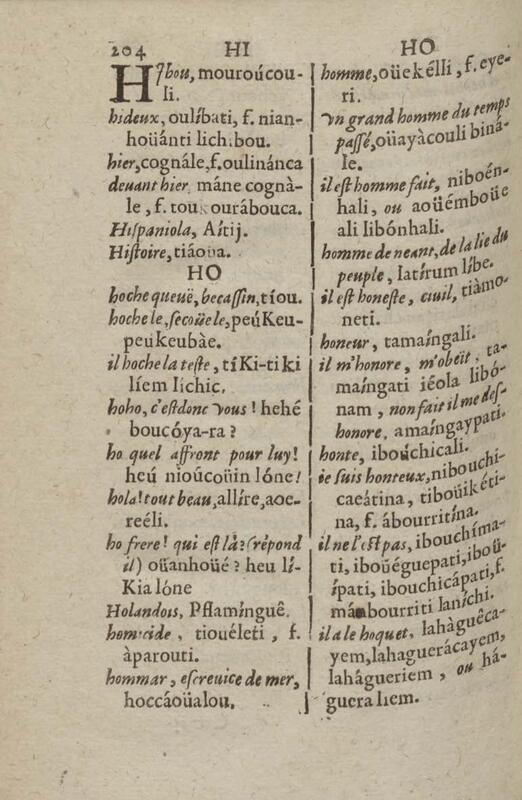 204 HI
HIbou, mouroúcou-
li.
hideux, oulíbati, f. nian-
hoüánti lichibou.
hier, cognále, f. oulinánca
deuant hier, máne cognà-
le, f. toukourábouca.
Hiſpaniola, Aítij.
Hiſtoire, tiáoua.
HO
hoche queuë, becaſſin, tíou.
hoche le, ſecoüe le, peúKeu-
peukeubàe.
il hoche la teſte, tíKi-tiki
líem lichic.
hoho, c'eſt donc vous! hehé
boucóya-ra?
ho quel affront pour luy!
heú nioúcoüin lóne!
hola! tout beau, allíre, aoe-
reéli.
ho frere! qui eſt là? (répond
il) oüanhoüé? heu lí-
Kia lóne
Holandois, Pflamínguê.
homicide, tiouéleti, f.
àparouti.
hommar, eſcreuice de mer,
hoccáoüalou.
HO
homme, oüekélli, f. eye-
ri.
vn grand homme du temps
paſſé, oüayàcouli biná-
le.
il eſt homme fait, niboén-
hali, ou aoüémboüe
ali libónhali.
homme de neant, de la lie du
peuple, latírum líbe.
il eſt honeſte, ciuil, tiàmo-
neti.
honeur, tamaíngali.
il m'honore, m'obeït, ta-
maíngati iéola libó-
nam, non fait il me deſ-
honore, amaíngaypati.
honte, iboüchicali.
ie ſuis honteux, nibouchi-
caeátina, tiboüikéti-
na, f. ábourritína.
il ne l'eſt pas, ibouchíma-
ti, iboüéguepati, iboü-
ípati, ibouchicápati, f.
mámbourriti laníchi.
il a le hoquet, lahàguêca-
yem, lahaguerácayem,
lahágueriem, ou há-
guera liem.